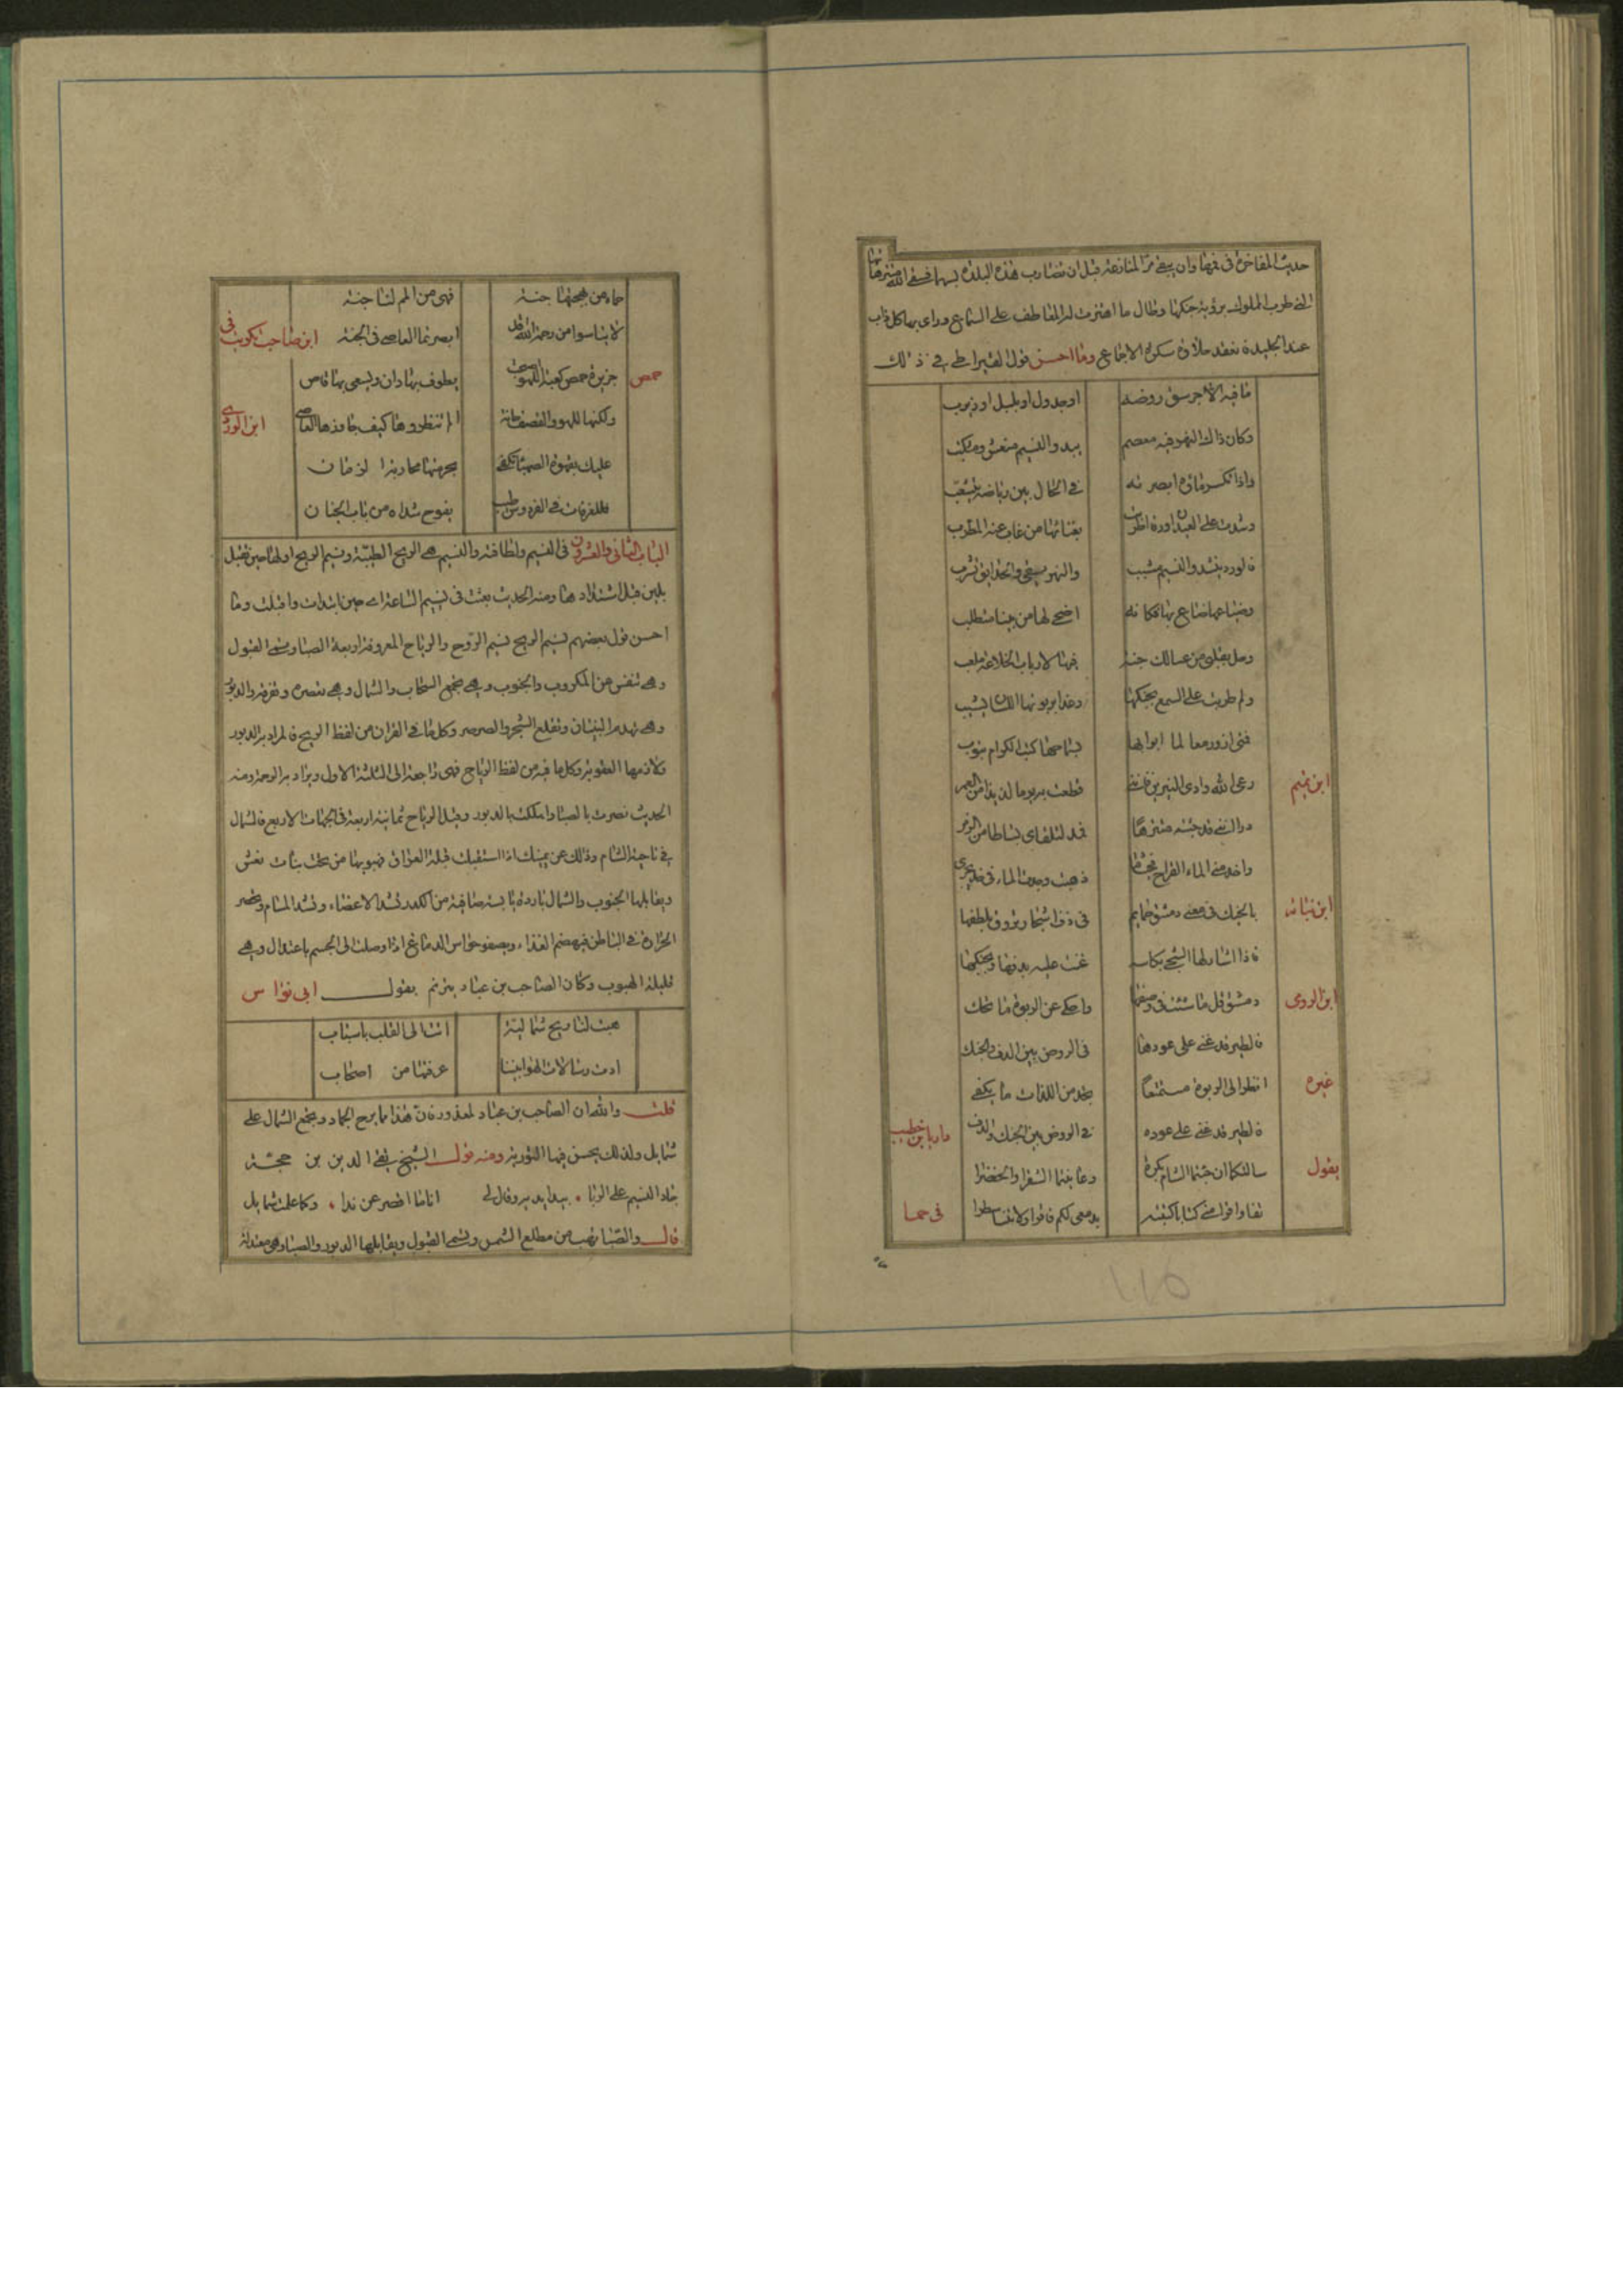 حديث المفاخرة في فمها وان يبقى مر المنازعة قبل ان تضارب هذه البلدة بسهام فسقى الله منتزهاتها
التي طرب الملوك برؤية جنكها وطال ما اهتزت له المعاطف على السماع وراى بها كل ذايب
عند الجليدة نعقد حلاوة سكره الاجماع وما احسن قول القيراطي في ذلك
ما فيه الا جوسق روضه
او جدول او بلبل او ربرب
وكان ذاك النهر فيه معصم
بيد والنسيم منقش ومكتب
واذا تكسر ماؤه ابصرته
في الحال بين رياضه يتشعب
وشدت على العيدان ورق اطربت
بغنائها من غاب عنه المطرب
فالورد ينشد والنسيم مشبب
والنهر يسقي والحدايق تشرب
وضياعها ضاع بها فكانه
اضحى لها من بيننا متطلب
وحل بقلبي من عسالك جنة
فيها لارباب الخلاعة ملعب
ولم طربت على السمع بجنكها
وغدا بربوتها اللسان يشبب
فمتى ازور معالما ابوابها
بسماحها كتب الكرام تبوب
ابن تميم
رعى الله وادي النيربين فانني
قطعت به يوما لذيذا من العمر
درى انني قد جئته متنزها
فمد لتلقاي بساطا من الزهر
واخدمني الماء القراح فحيثما
ذهبت وجدت الماء في خدمتي يجري
ابن نباته
يا لجنك في مغنى دمشق حمايم
في دف اشجار يروق بلطفها
فاذا اشار لها الشجي بكاسه
غنت عليه بدفها وبجنكها
ابن الوردى
دمشق قل ما شئت في وصفها
واحك عن الربوة ما تحك
فالطير قد غنى على عودها
في الروض بين الدف والجنك
غيره
انظر الى الربوة مستمتعا
تجد من اللذات ما يكفي
فالطير قد غنى على عوده
في الروض بين الجنك والدف
داريا ابن خطيب
يقول
سالتكما ان جئتما الشام بكرة
وعاينتما الشقرا والخضرا
قفا واقرا مني كتابا كتبته
بدمعي لكم فاقرا ولا تنسا سطرا
في حما
حماه من بهجتها جنة
فهي من الهم لنا جنة
لا تياسوا من رحمة الله قد
ابصرتما العاصي في الجنة
ابن صاحب تكريت في
حمص
جزيرة حمص كعبة اللهو اصبحت
يطوف بها دان ويسعى بها قاص
ولكنها للهو والقصف حانة
الم تنظروها كيف جاورها العاصي
ابن الوردي
عليك بقهوة الصهباء تكفى
بجرمتها محاربة الزمان
فللفرفات في الفردوس طيب
يفوح شذاه من باب الجنان
الباب الثاني والعشرون في النسيم ولطافته والنسيم هي الريح الطيبة ونسيم الريح اولها حين تقبل
بلين قبل اشتدادها ومنه الحديث بعثت في نسيم الساعة اي حين ابتدات واقبلت وما
احسن قول بعضهم نسيم الريح نسيم الروح والرياح المعروفة اربعة الصبا وتسمى القبول
وهي تنفس عن المكروب والجنوب وهي تجمع السحاب والشمال وهي تعصره وتفرقه والدبور
وهي تهدم البنيان وتقلع الشجر والصرصر وكل ما في القران من لفظ الريح فالمراد به الدبور
ولازمها العقوبة وكل ما فيه من لفظ الرياح فهي راجعة الى الثلثة الاول ويراد به الرحمة ومنه
الحديث نصرت بالصبا واهلكت بالدبور وقيل الرياح ثمانية اربعة في الجهات الاربع فالشمال
في ناحية الشام وذلك عن يمينك اذا استقبلت قبلة العراق فهبوبها من تحت بنات نعش
ويقابلها الجنوب والشمال باردة يابسة صافية من الكدر تشد الاعضاء وتسد المسام وتحصر
الحرارة في الباطن فيهضم الغذاء ويصفو حواس الدماغ اذا وصلت الى الجسم باعتدال وهي
قليلة الهبوب وكان الصاحب بن عباد يترنم بقول ابى نواس
هبت لنا ريح شمالية
اتت الى القلب باسباب
ادت رسالات الهوا بيننا
عرفتها من اصحاب
قلت والله ان الصاحب بن عباد لمعذور فان هذا ما يرح الجماد ويجمع الشمال على
شمايل ولذلك يحسن فيها التورية ومنه قول الشيخ تقى الدين بن حجة
جاد النسيم على الربا • بيدايديه وقال لي انا ما اقصر عن ندا • وكما علمت شمايل
قال والصبا تهب من مطلع الشمس وتسمى القبول ويقابلها الدبور والصبا وهي معتدلة